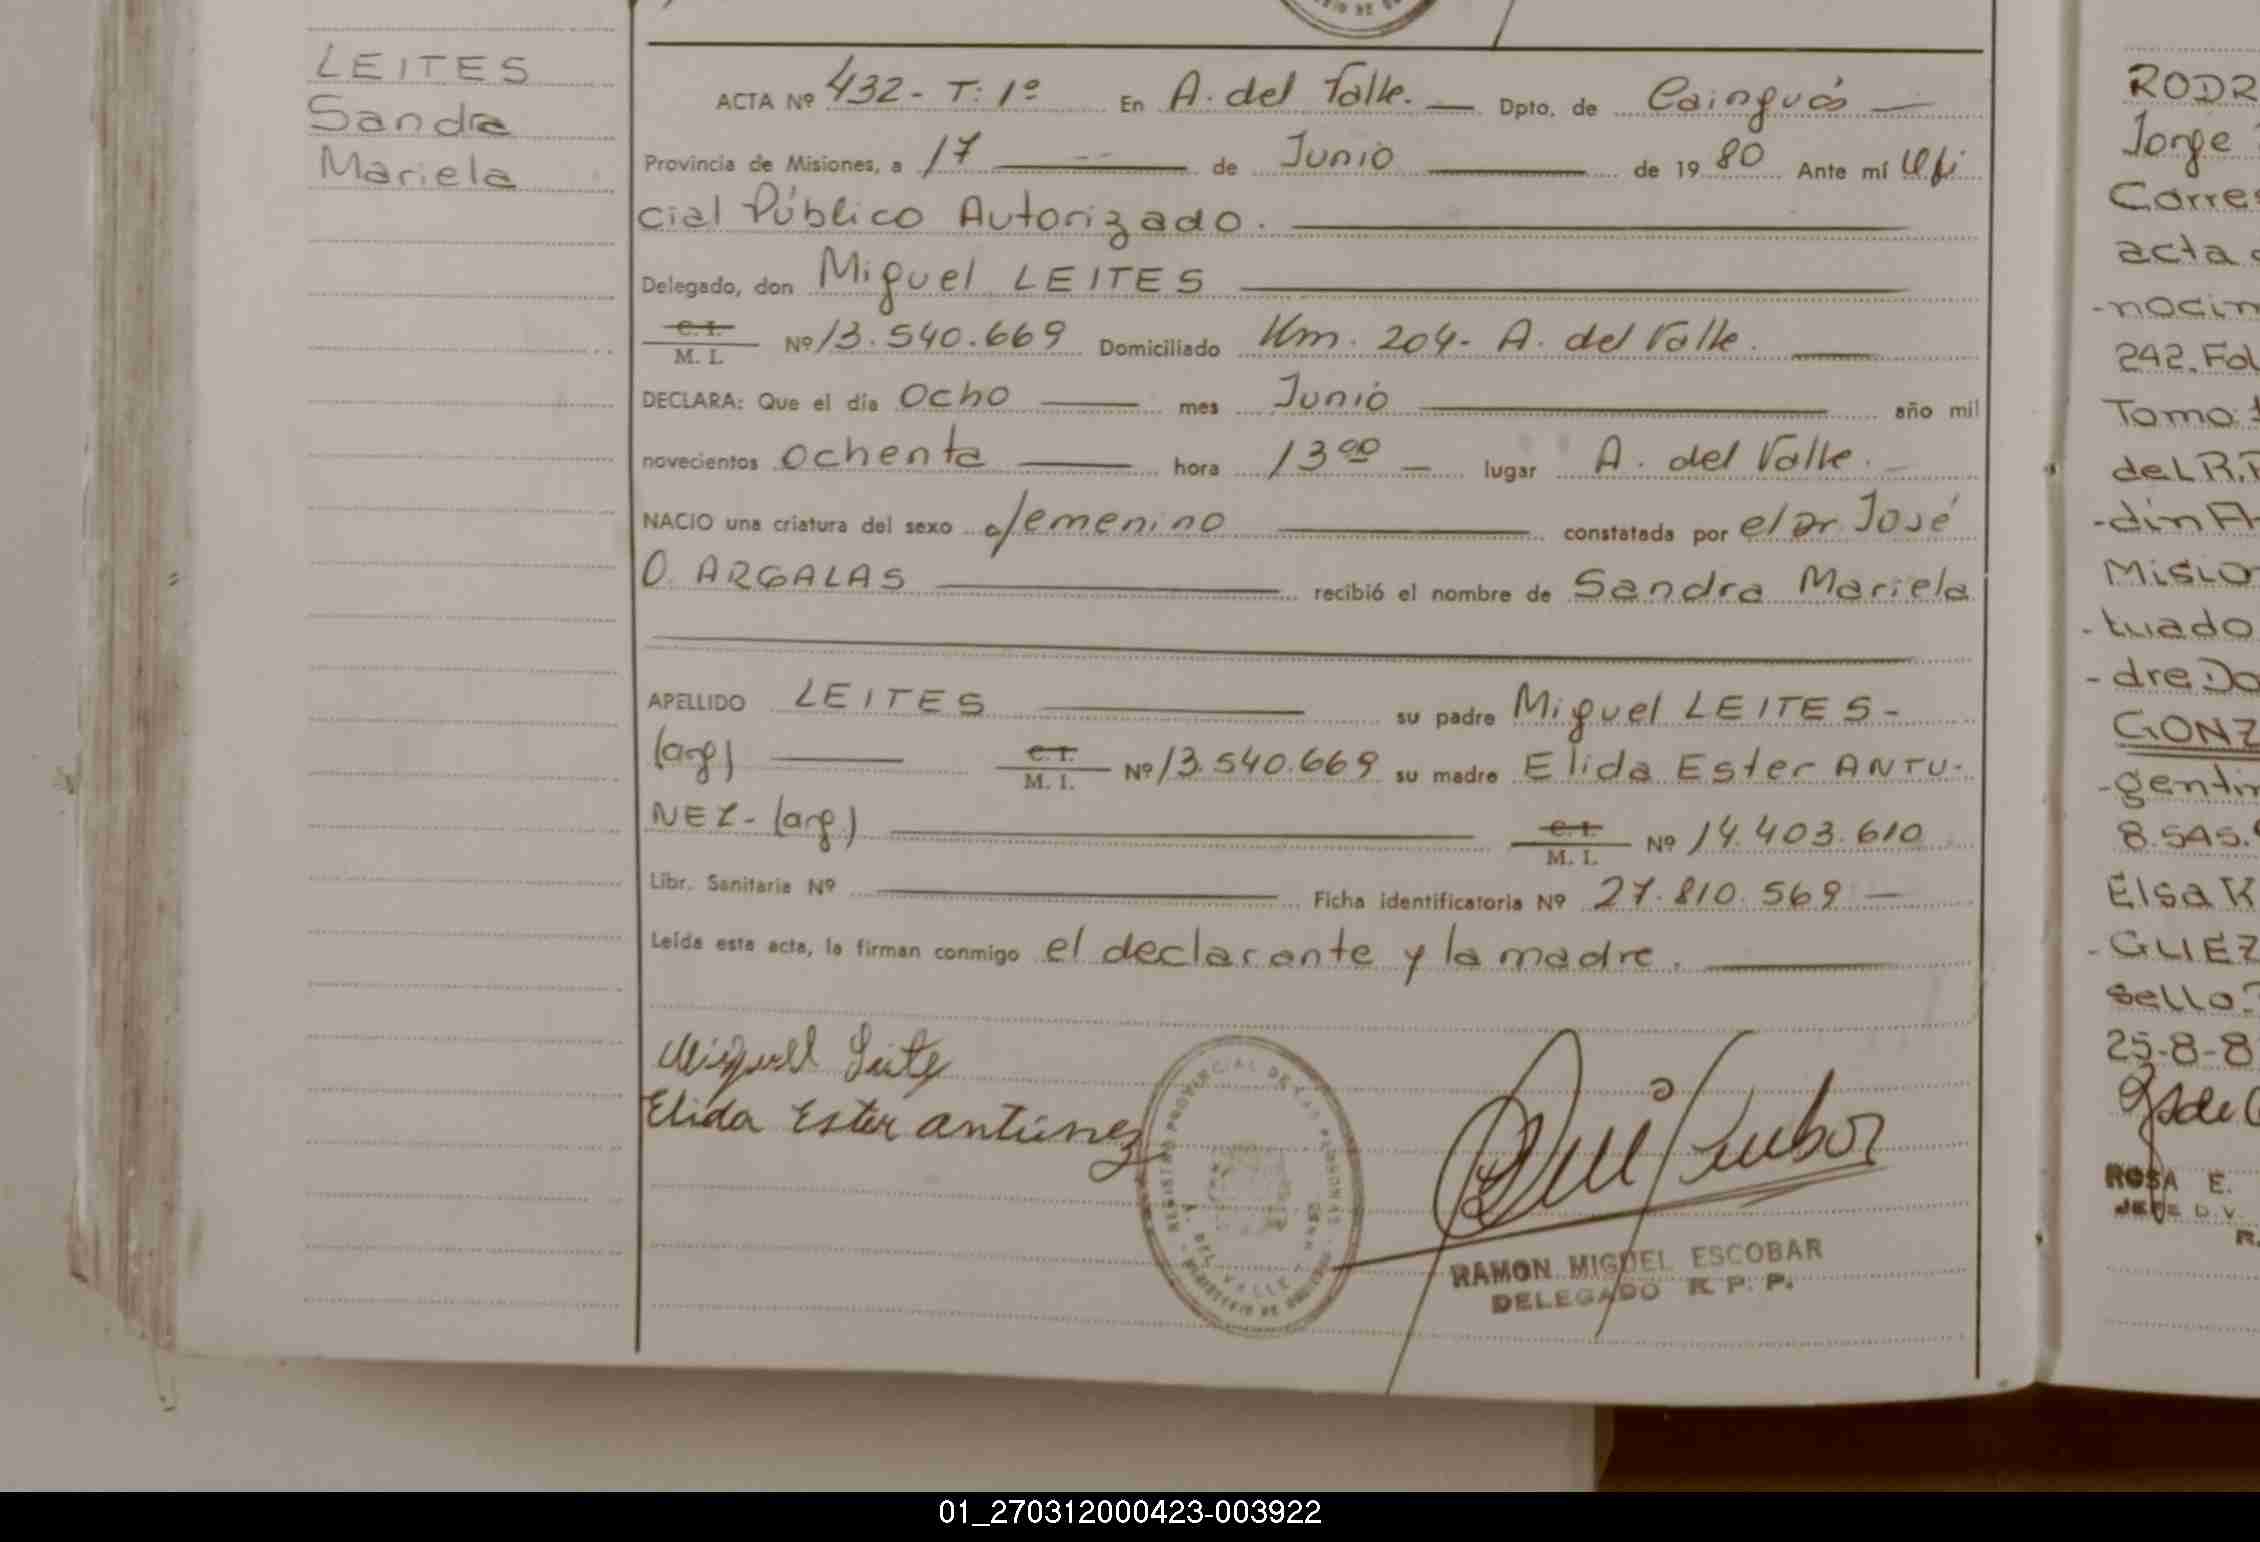 LEITES
Sandra
Mariela
ACTA Nº 432- T: 1º En A. del Valle. Dpto. de Cainguás
Provincia de Misiones, a 17 de Junio de 1980 Ante mí Ofi
cial Público Autorizado.
Delegado, don Miguel LEITES
C. I.
M. I. Nº 13.540.669 Domiciliado Km. 204- A. del Valle.
DECLARA: Que el día ocho mes Junio año mil
novecientos ochenta hora 13 00 lugar A. del Valle.
NACIO una criatura del sexo femenino constatada por el Dr. José
O. ARGALAS recibió el nombre de Sandra Mariela
APELLIDO LEITES su padre Miguel LEITES-
(arg) C. I. M. I. Nº 13.540.669 su madre Elida Ester ANTU-
NEZ- (arg) C. I. M. I. Nº 14.403.610
Libr. Sanitaria Nº Ficha identificatoria Nº 27.810.569
Leída esta acta, la firman conmigo el declarante y la madre.
Miguel Leite
Elida Ester antúnez
REGISTRO PROVINCIAL DE LAS PERSONAS
A. DEL VALLE
MINISTERIO DE
RAMON MIGUEL ESCOBAR
DELEGADO R. P. P.
RODR
Jorge
Corres
acta
-nocim
242. Fol
Tomo:
del R.P
-din A
Misio
-tuado
-dre Do
GONZ
-gentin
8.545.
Elsa K
-GUEZ
sello
25-8-8
ROSA E.
JEFE D.V.
R.
01_270312000423-003922